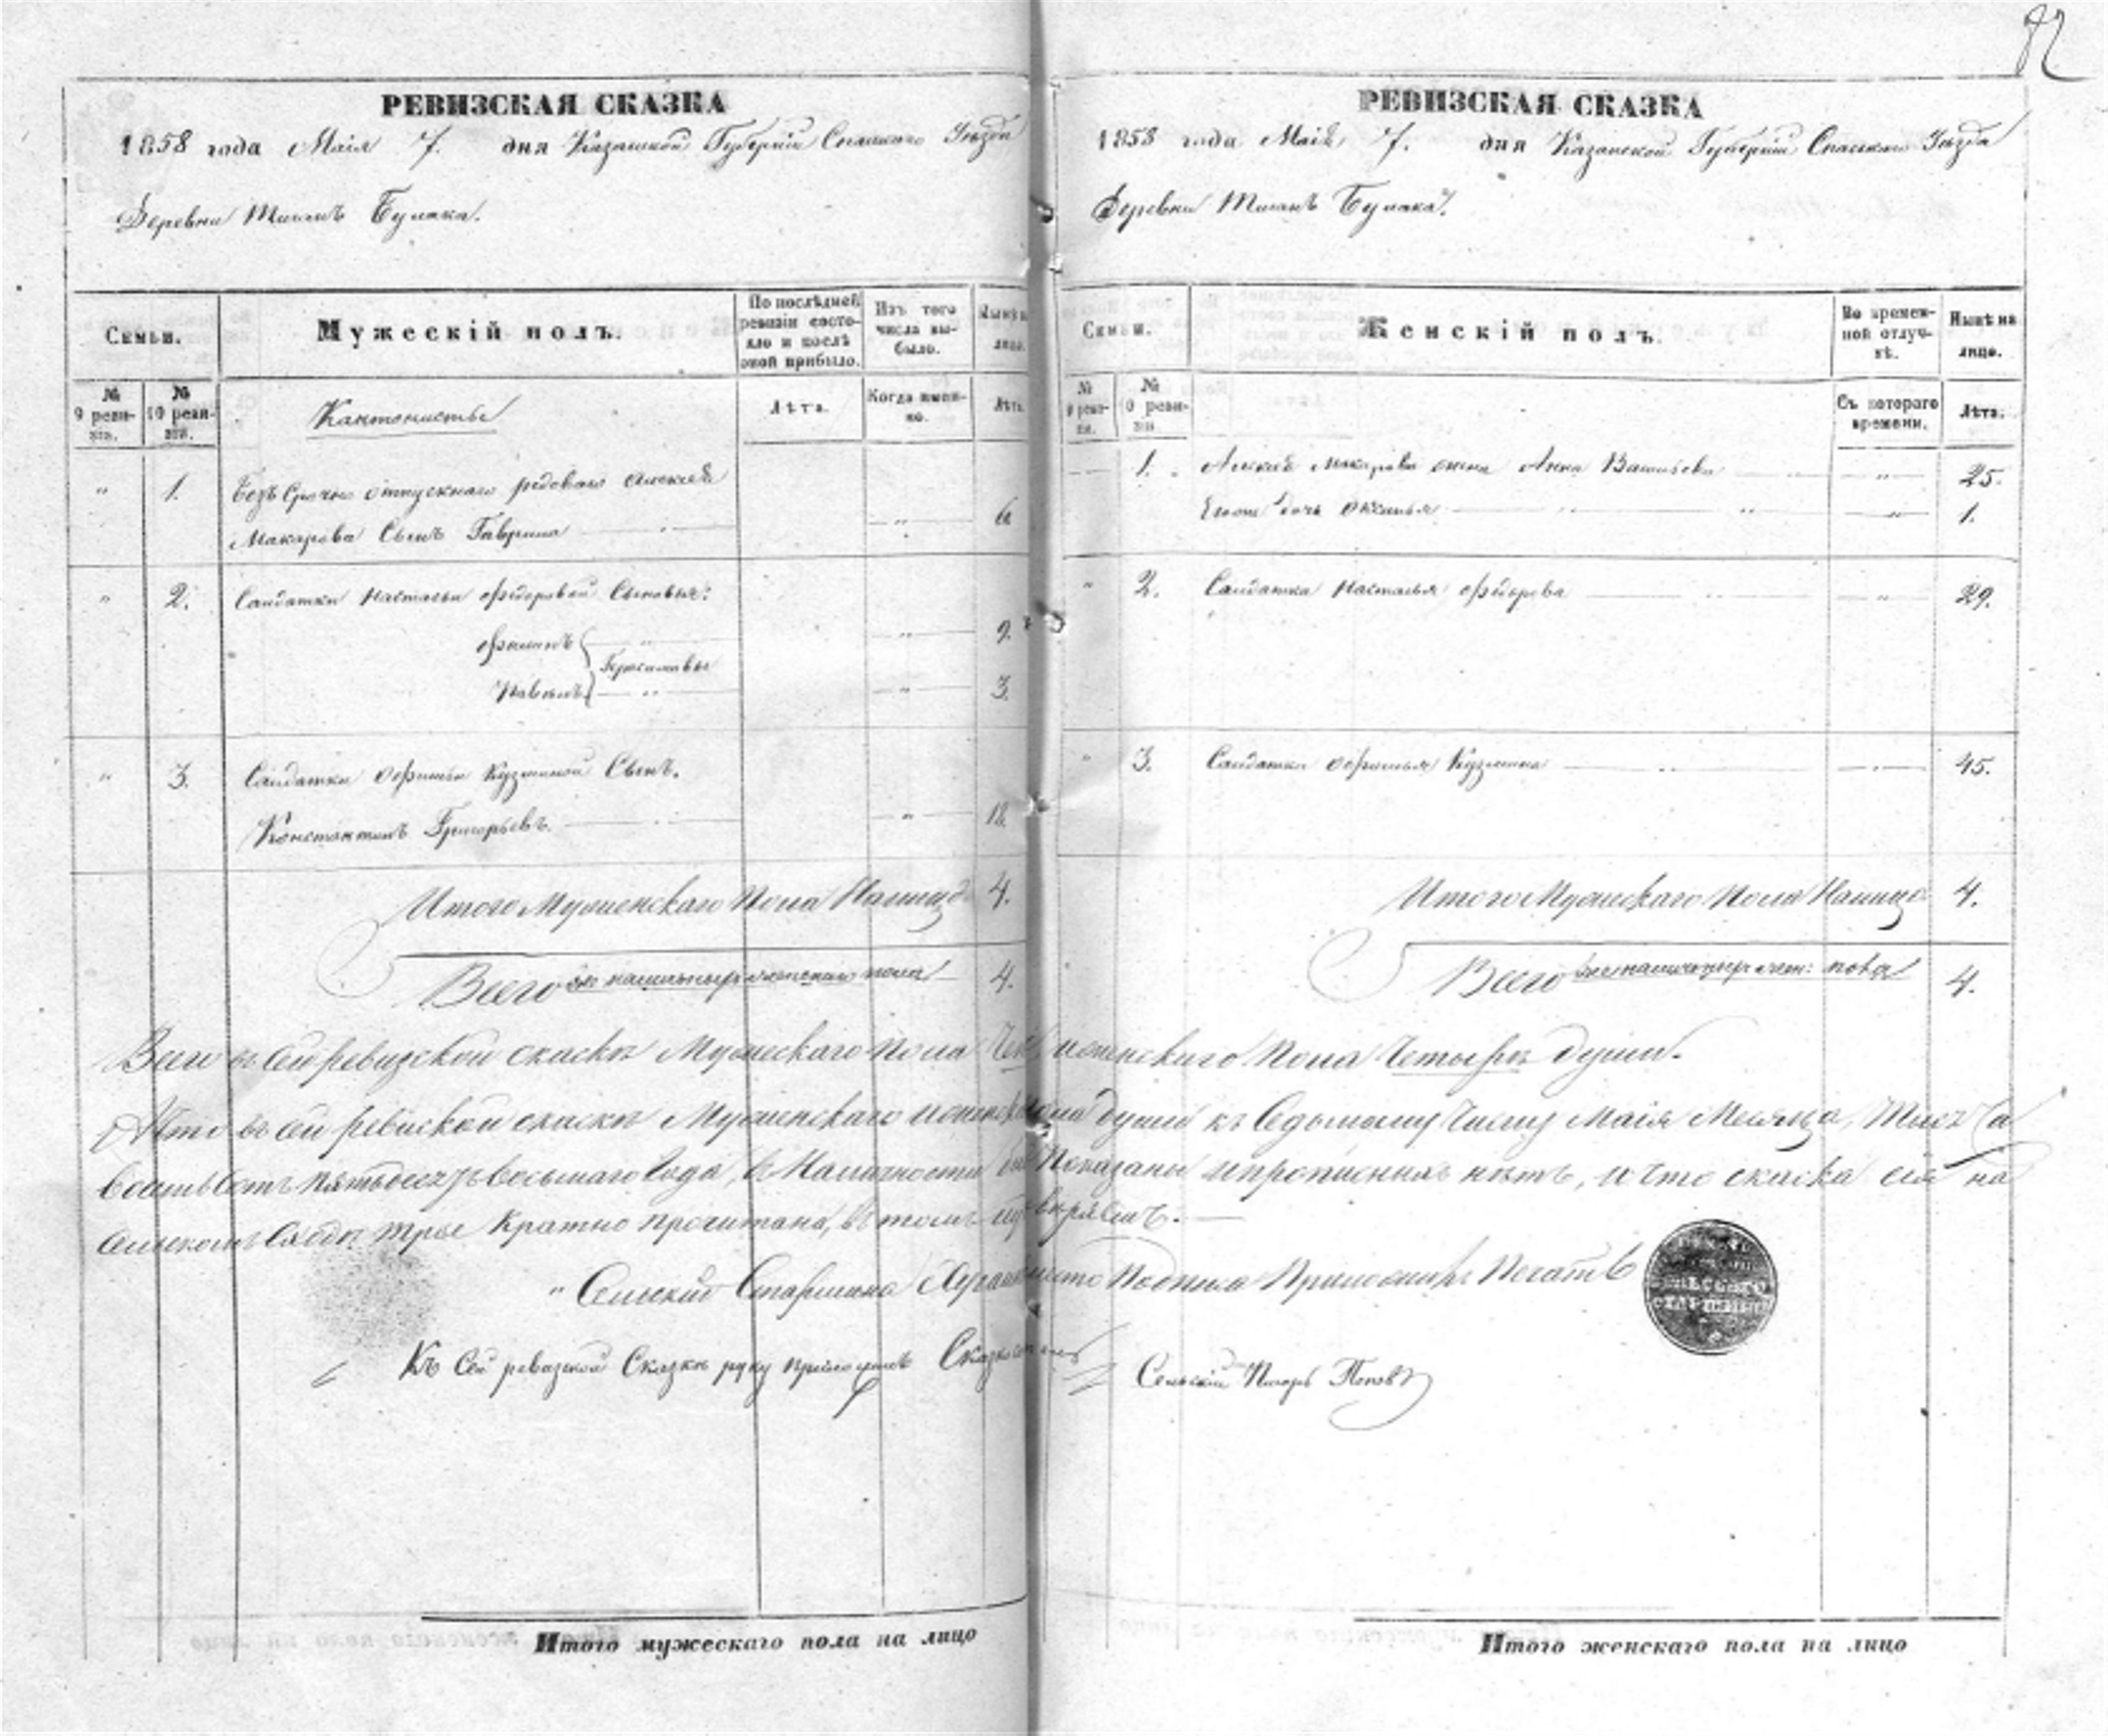 82
РЕВИЗСКАЯ СКАЗКА
1858 года Маія 7. дня Казанской Губерніи Спаскаго Уѣзда
Деревни Тиганъ Булака.
Семьи.
Мужескій полъ.
По послѣдней ревизіи состо-
яло и послѣ оной прибыло.
Изъ того числа вы-
было.
Нынѣ на лицо.
№ 9 реви-
зіи.
№ 10 реви-
зіи.
Кантонисты
Лѣта.
Когда имен-
но.
Лѣта.
" 1. Безъ Срочно отпускнаго рядоваго Алексѣя
Макарова Сынъ Гаврила " 6
" 2. Салдатки Настасьи Ѳедоровой Сыновья:
Филипъ " 9.
Герасимовы
Павелъ " 3.
" 3. Салдатки Офимьи Кузминой Сынъ.
Константинъ Григорьевъ. " 18.
Итого Мужескаго Пола Налицо 4.
Всего наличныхъ пола 4.
РЕВИЗСКАЯ СКАЗКА
1858 года Маія 7. дня Казанской Губерніи Спаскаго Уѣзда
Деревни Тиганъ Булака.
Семьи.
Женскій полъ.
Во времен-
ной отлуч-
кѣ.
Нынѣ на лицо.
№ 9 реви-
зіи.
№ 10 реви-
зіи
Съ котораго времени.
Лѣта.
1. Алексѣя Макарова жена Анна Васильева " 25.
дочь Оксинья " 1.
" 2. Салдатка Настасья Ѳедорова " 29.
" 3. Салдатка Офимья Кузмина " 45.
Итого Пола Налицо 4.
Всего наличныхъ жен: пола 4.
Всего въ сей ревизской скаскѣ Мужескаго пола женскаго пола Четыре души.
Что въ сей ревиской скаскѣ души къ Седьмому Числу Маія Месяца, Тысъча
восмьсотъ пятьдесятъ восьмаго года, в Наличности Показаны и прописныхъ нѣтъ, и что скаска сія на
сельскомъ трое Кратно прочитана, в томъ
Сельскій Старшина Подписа Приложилъ Печать
СЕЛЬСКАГО
СТАРШИНЫ
Къ Сей ревизской Сказкѣ руку приложилъ Сельскій Писарь Поповъ
Итого мужескаго пола на лицо
Итого женскаго пола на лицо